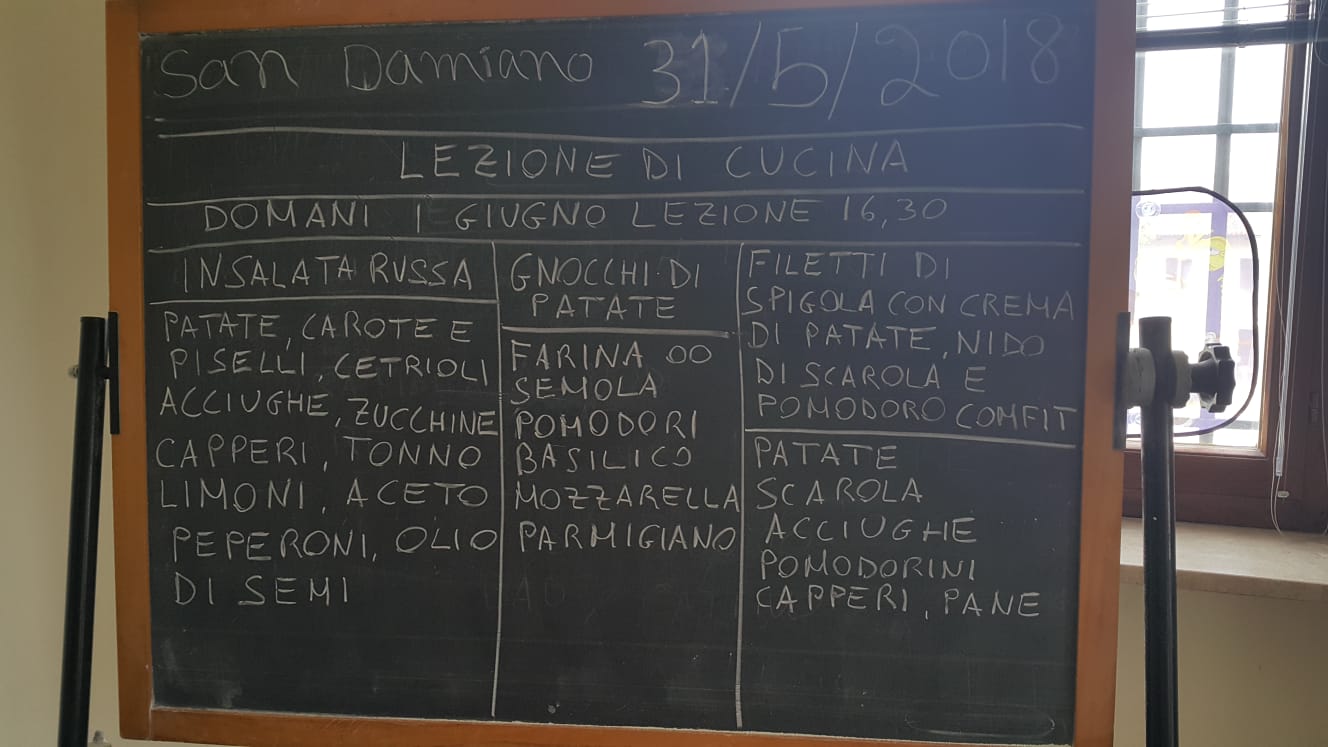 San Damiano 31/5/2018
LEZIONE DI CUCINA
DOMANI 1 GIUGNO LEZIONE 16,30
INSALATA RUSSA
PATATE, CAROTE E
PISELLI, CETRIOLI
ACCIUGHE, ZUCCHINE
CAPPERI, TONNO
LIMONI, ACETO
PEPERONI, OLIO
DI SEMI
GNOCCHI DI
PATATE
FARINA 00
SEMOLA
POMODORI
BASILICO
MOZZARELLA
PARMIGIANO
FILETTI DI
SPIGOLA CON CREMA
DI PATATE, NIDO
DI SCAROLA E
POMODORO COMFIT
PATATE
SCAROLA
ACCIUGHE
POMODORINI
CAPPERI, PANE